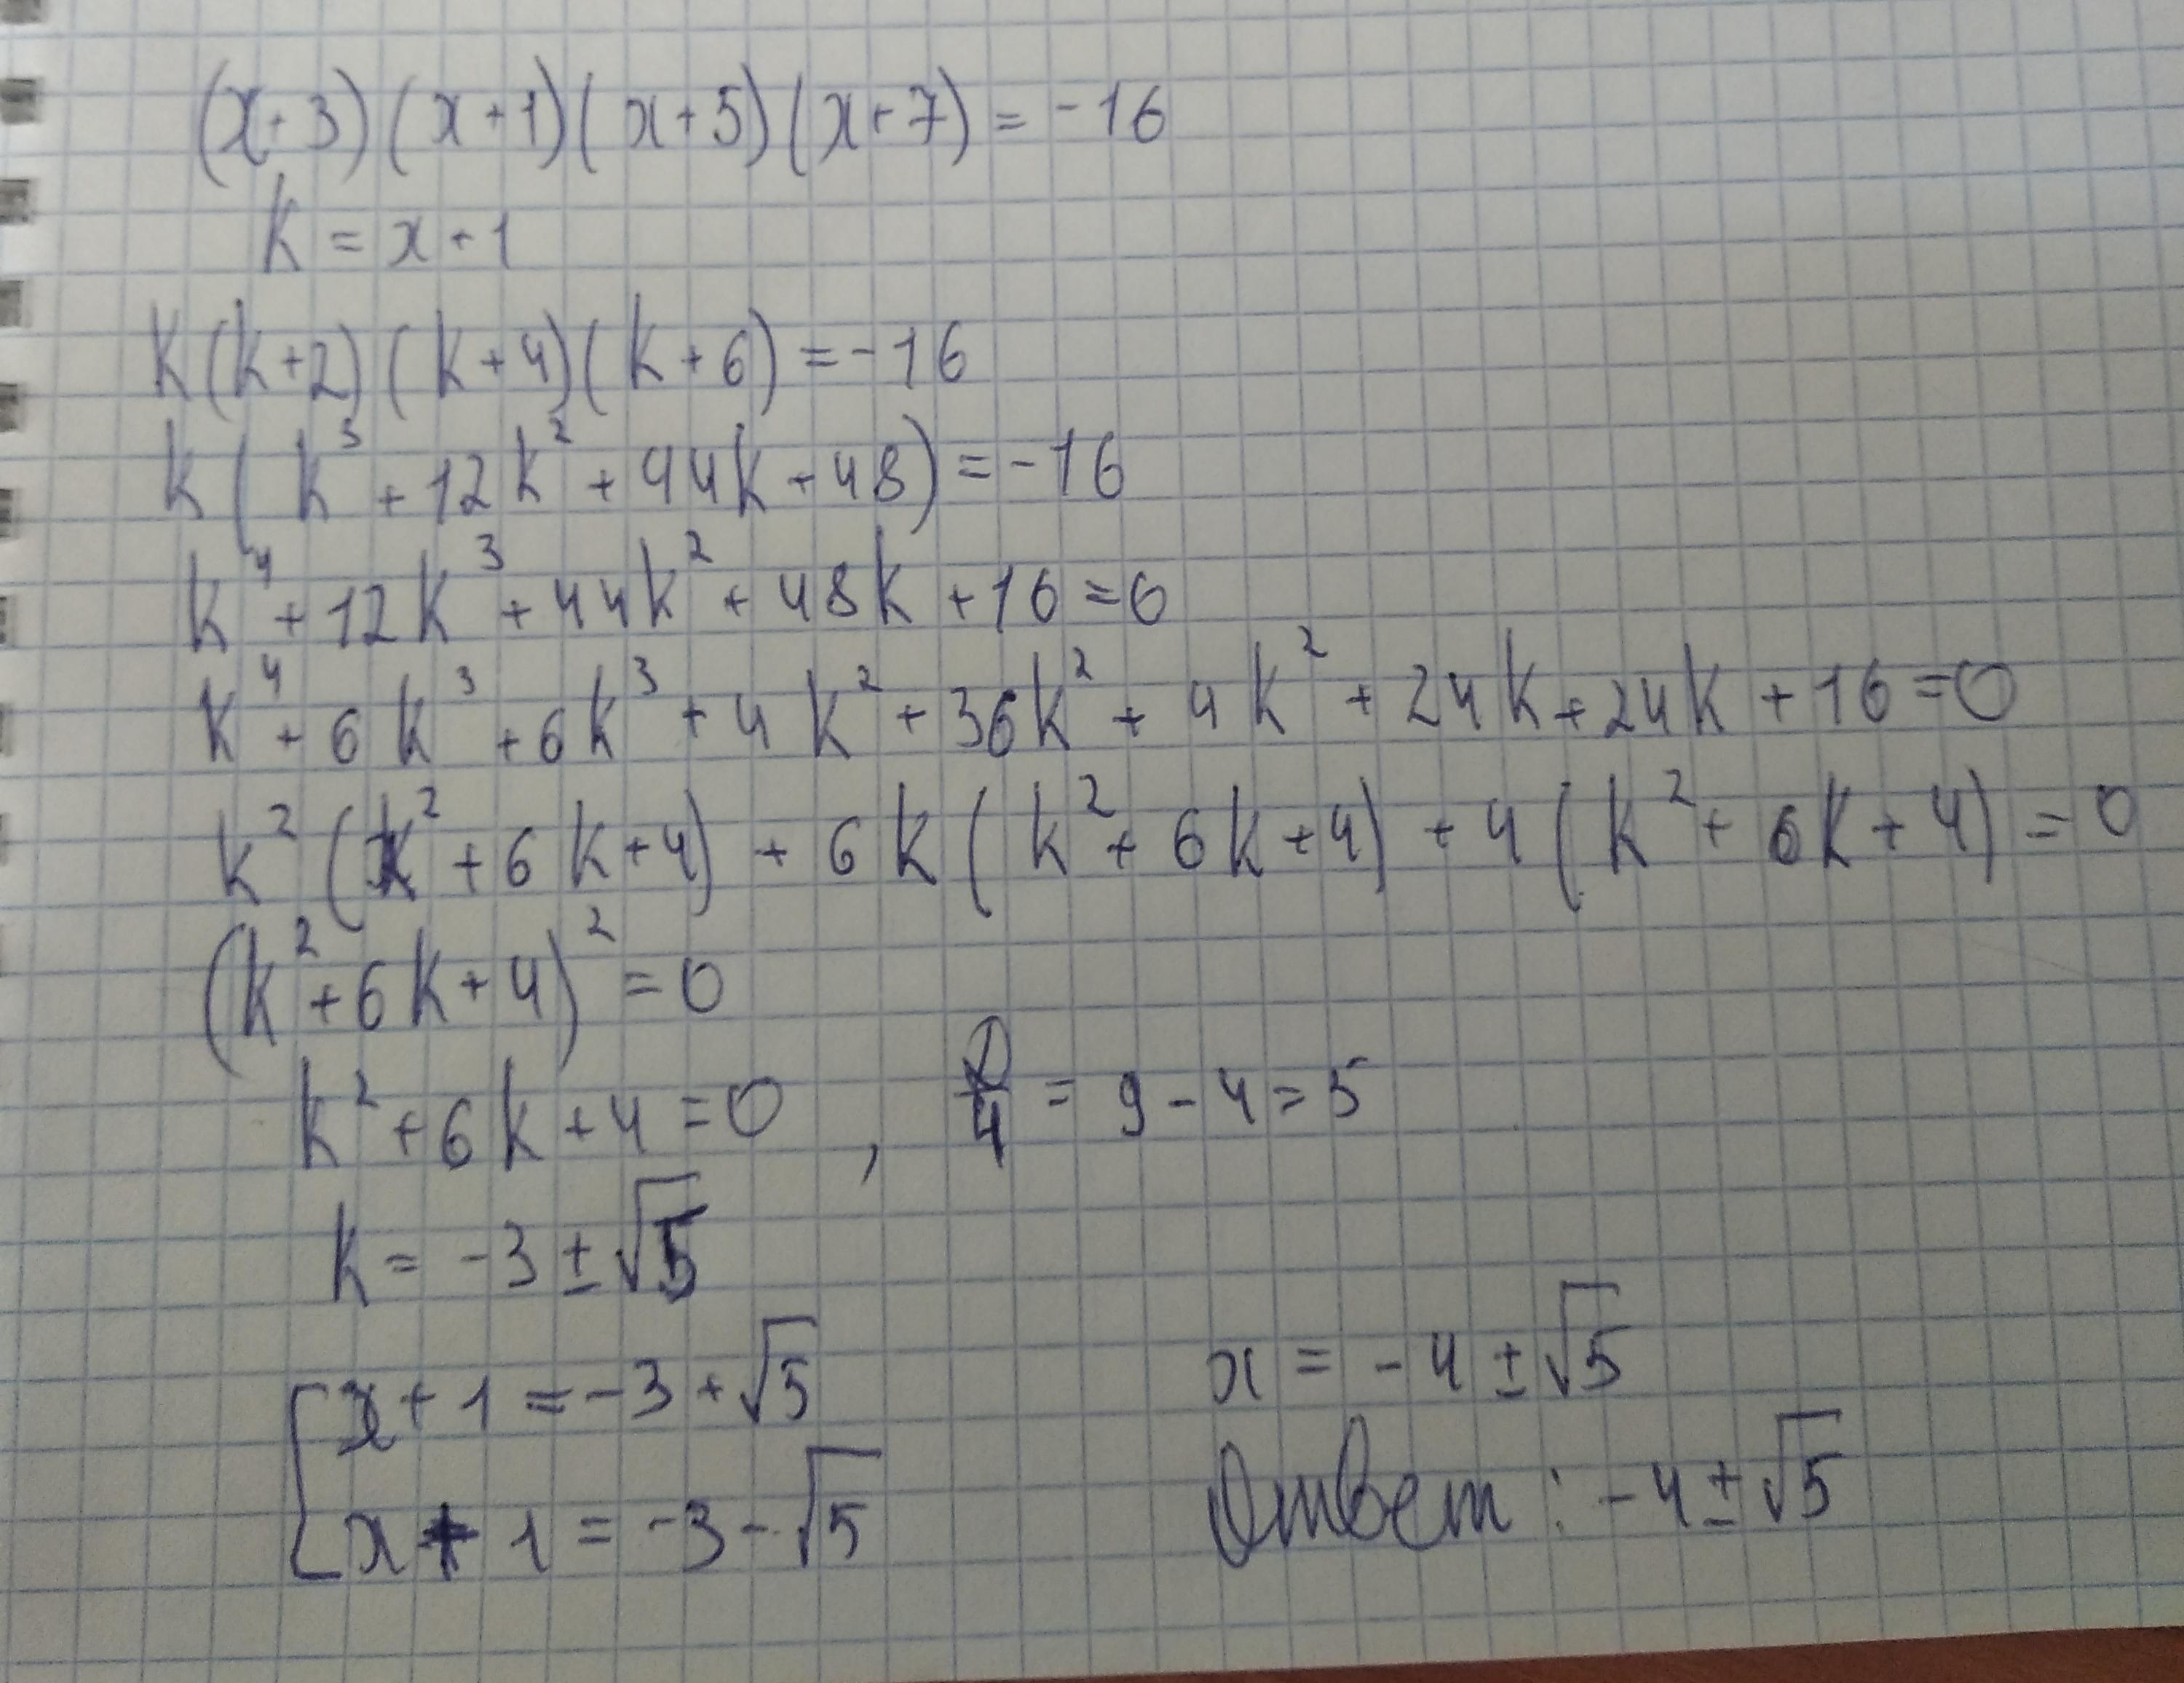 (x+3)(x+1)(x+5)(x+7) = -16
k = x+1
k(k+2)(k+4)(k+6) = -16
k(k³ + 12k² + 44k + 48) = -16
k⁴ + 12k³ + 44k² + 48k + 16 = 0
k⁴ + 6k³ + 6k³ + 4k² + 36k² + 4k² + 24k + 24k + 16 = 0
k²(k² + 6k + 4) + 6k(k² + 6k + 4) + 4(k² + 6k + 4) = 0
(k² + 6k + 4)² = 0
k² + 6k + 4 = 0 , D/4 = 9 - 4 = 5
k = -3 ± √5
[ x + 1 = -3 + √5
x + 1 = -3 - √5
x = -4 ± √5
Ответ: -4 ± √5